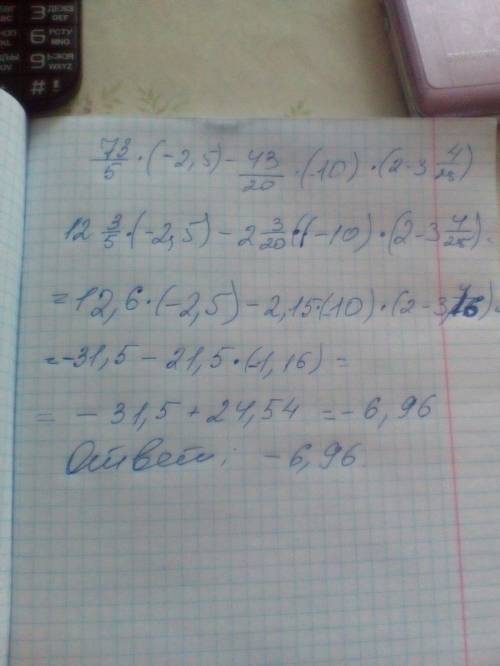 3 ДЕЖЗ DEF
6 РСТУ MNO
9 ЬЭЮЯ WXYZ
#
73/5 · (-2,5) - 43/20 · (-10) · (2-3 4/25)
12 3/5 · (-2,5) - 2 3/20 · (-10) · (2-3 4/25) =
= 12,6 · (-2,5) - 2,15 · (10) · (2-3,16) =
= -31,5 - 21,5 · (-1,16) =
= - 31,5 + 24,54 = - 6,96
Ответ: - 6,96